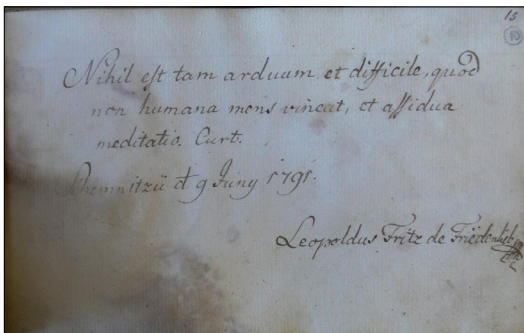 15
Nihil est tam arduum et difficile, quod
non humana mens vincat, et assidua
meditatio. Curt.
d 9 Juny 1791.
Leopoldus Fritz de